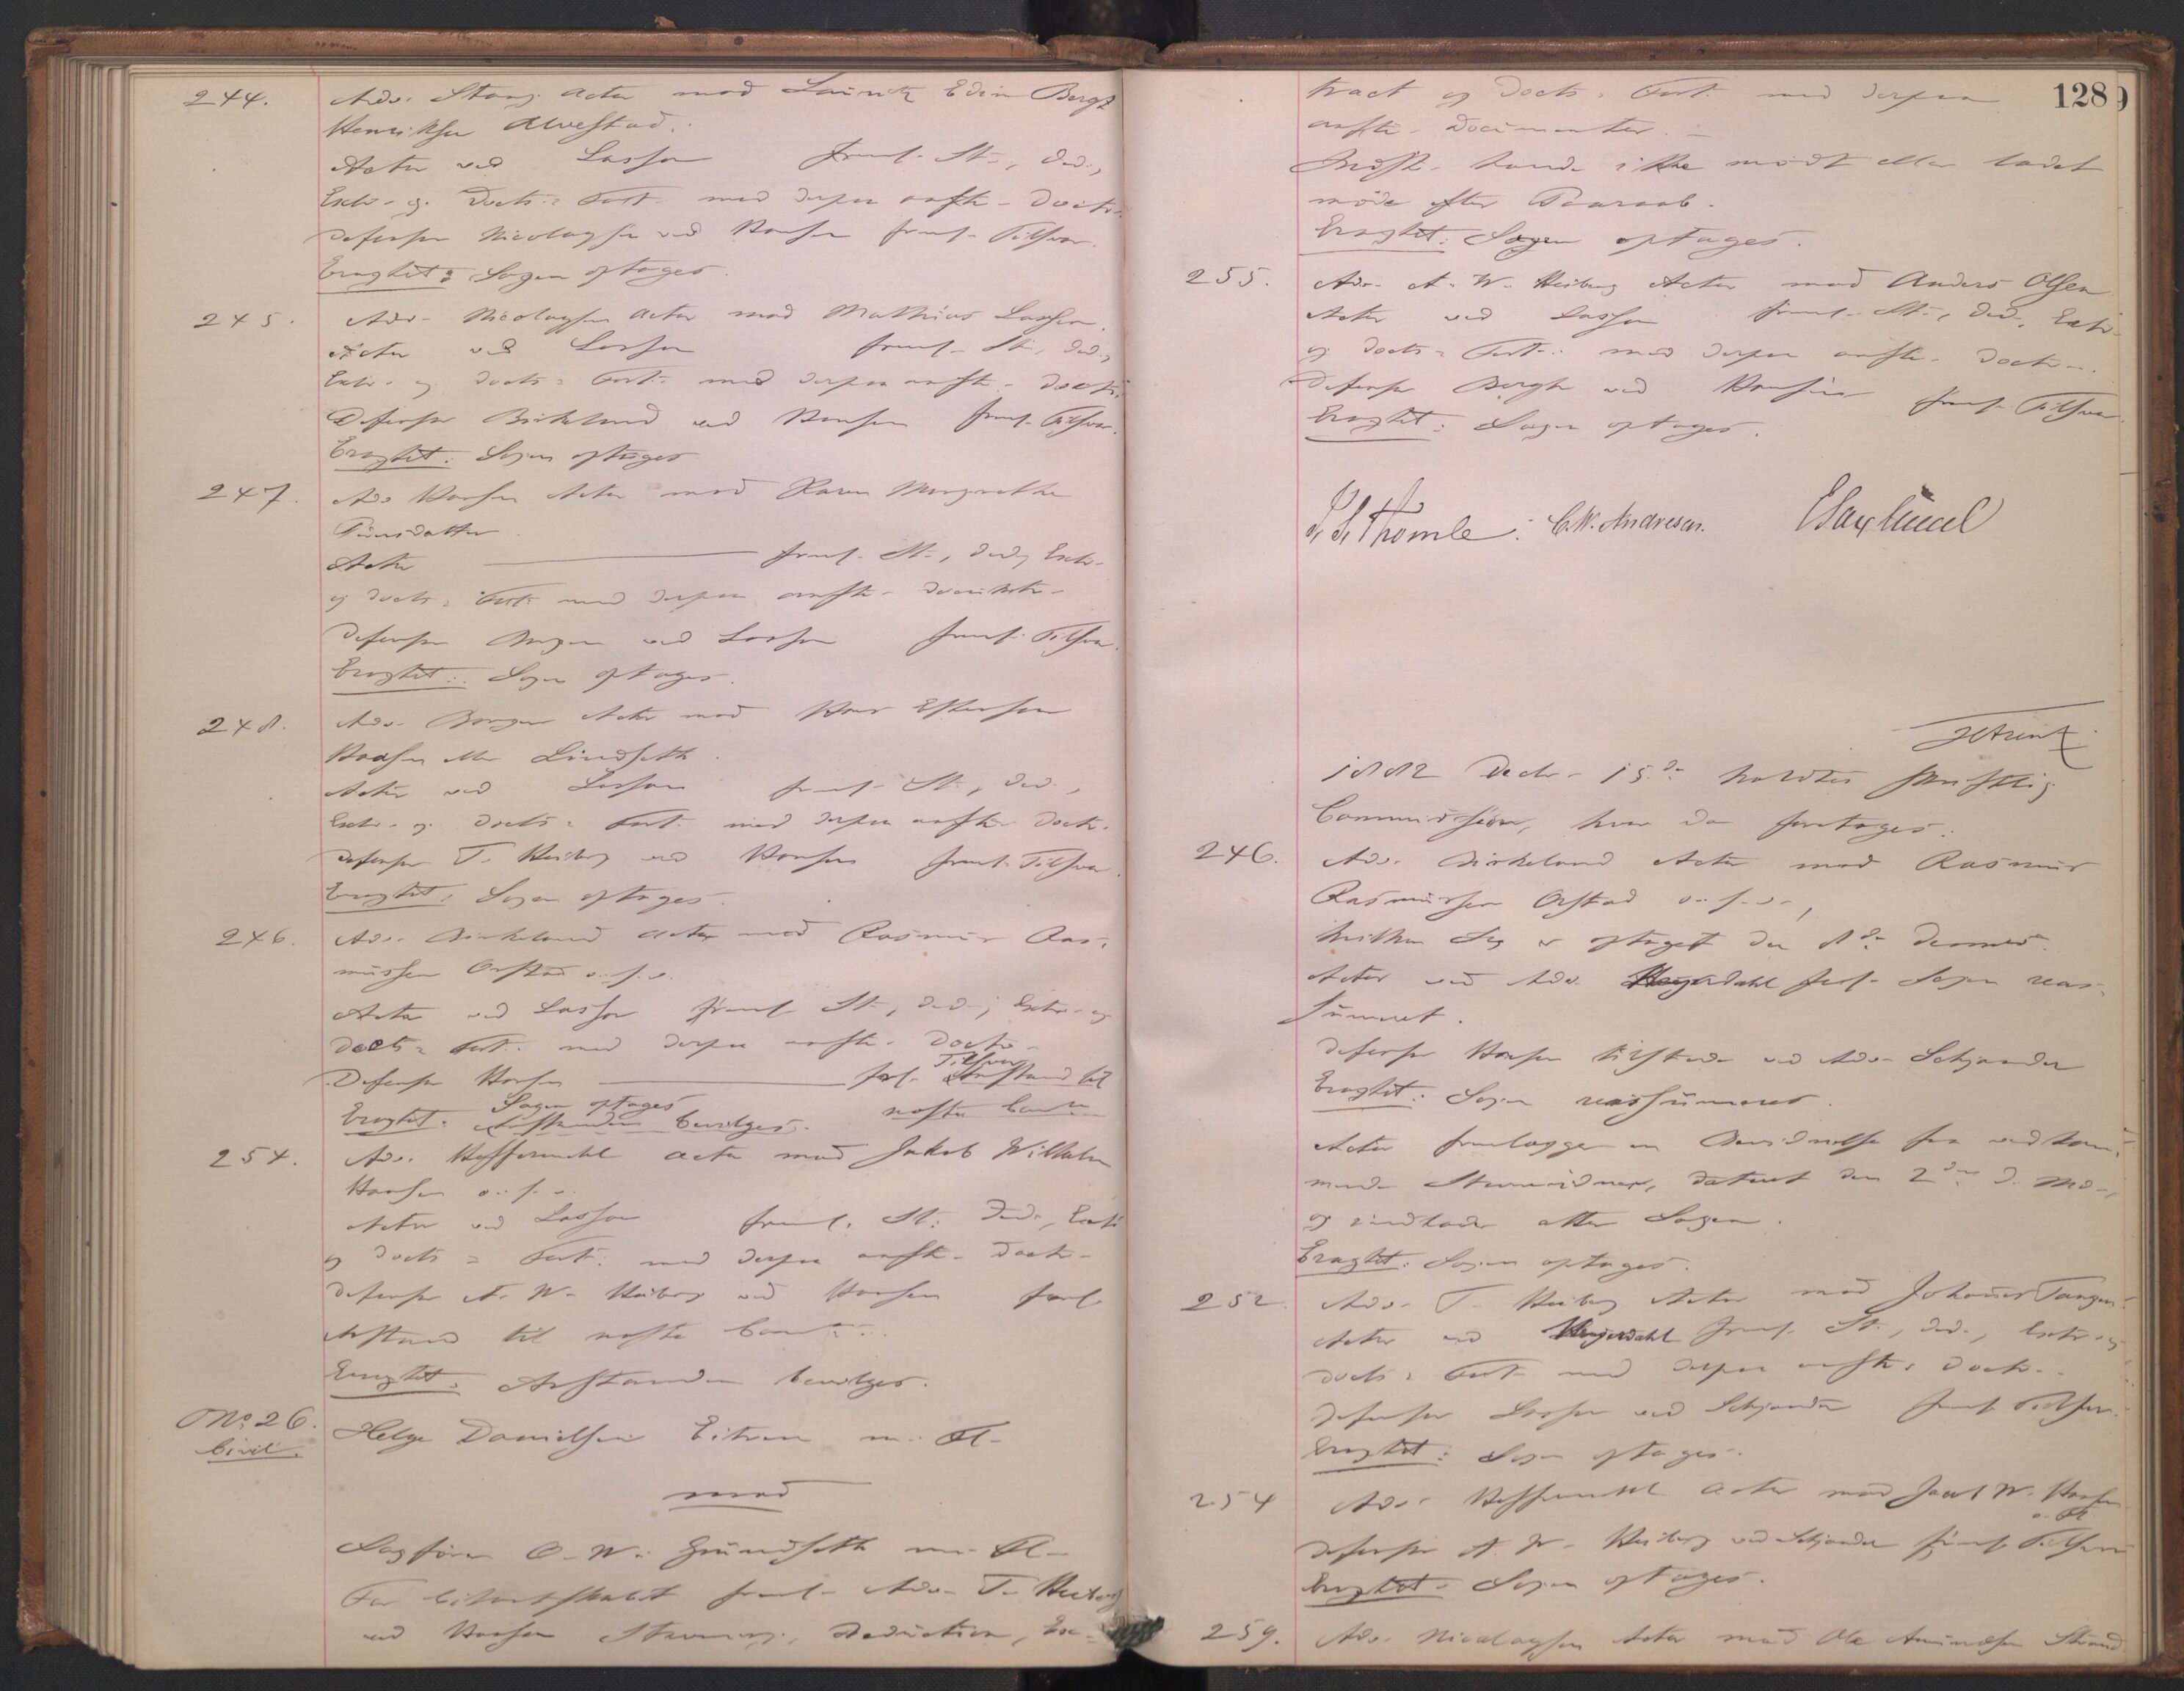 244. Adv. Stang Actor mod Lauritz Edin Bergh
Henriksen Alvestad.
Actor ved Lasson freml. St., Ded.,
Extr. og Docts: Fort. med derpaa anfte. Doctr.
Defensor Nicolaysen ved Hansen freml. Tilsvar.
Eragtet: Sagen optages.
245. Adv. Nicolaysen Actor mod Mathias Larsen.
Actor ved Lasson freml. St., Ded.,
Extr. og Docts: Fort. med derpaa anfte. Doctr.
Defensor Birkeland ved Hansen freml. Tilsvar.
Eragtet: Sagen optages
247. Adv. Hansen Actor mod Karen Margrethe
Actor freml. St., Ded., Extr.
og Docts: Fort. med derpaa anfte.
Defensor ved Lasson freml. Tilsvar.
Eragtet: Sagen optages.
248. Adv. Actor mod Hans
eller Lindseth.
Actor ved Lasson freml. St., Ded.,
Extr. og Docts: Fort. med derpaa anfte. Doctr.
Defensor T. Heiberg ved Hansen freml. Tilsvar.
Eragtet: Sagen optages.
246. Adv. Birkeland Actor mod Rasmus Ras-
mussen Orstad o. s. v.
Actor ved Lasson freml. St., Ded., Extr. og
Docts: Fort. med derpaa anfte. Doctr.
Tilsvar
Defensor Hansen forl. Anstand til
Sagen optages næste
Eragtet: Anstanden bevilges.
254. Adv. Actor mod Jakob Wilhelm
Hansen o. s. v.
Actor ved Lasson freml. St., Ded., Extr.
og Docts: Fort. med derpaa anfte. Doctr.
Defensor A. W. Heiberg ved Hansen forl.
Anstand til næste
Eragtet: Anstanden bevilges.
No. 26. Helge Danielsen Eitrem m. Fl.
Civil.
mod
Sagfører O. W. Grundseth m. Fl.
For Citantskabet freml. Adv. T. Heiberg
ved Hansen Stevning, Deduction, Ex-
128
tract og Docts: Fort. med derpaa
anfte. Documenter.
Indst. havde ikke mødt eller ladet
møde efter Paaraab.
Eragtet: Sagen optages.
255. Adv. A. W. Heiberg Actor mod Anders Olsen
Actor ved Lasson freml. St., Ded., Extr.
og Docts: Fort. med derpaa anfte. Doctr.
Defensor Bergh ved Hansen freml. Tilsvar.
Eragtet: Sagen optages.
J. S. Thomle. C.W. Andresen.
1882 Decbr. 15de holdtes skriftlig
Commission, hvor da foretoges:
246. Adv. Birkeland Actor mod Rasmus
Rasmussen Orstad o. s. v.,
hvilken Sag er optaget den 8de dennes.
Actor ved Adv. Heyerdahl forl. Sagen reas-
sumeret.
Defensor Hansen tilstede ved Adv. Schjander
Eragtet: Sagen reassumeres.
Actor fremlægger en fra vedkom-
mende dateret den 2den d. Md.,
og indlader atter Sagen.
Eragtet: Sagen optages.
252. Adv. T. Heiberg Actor mod Johannes Tangen.
Actor ved Heyerdahl freml. St., Ded., Extr. og
Docts: Fort. med derpaa anfte. Doctr.
Defensor Lasson ved Schjander freml. Tilsvar.
Eragtet: Sagen optages.
254 Adv. Actor mod Jacob W. Hansen
Defensor A. W. Heiberg ved Schjander freml. Tilsvar
Eragtet: Sagen optages.
259. Adv. Nicolaysen Actor mod Ole Amundsen Strand